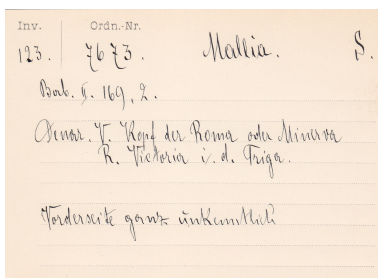 Inv. Ordn.-Nr.
123. 7673. Mallia. S.
Bab. II. 169, 2.
Denar. V. Kopf der Roma oder Minerva
R. Victoria i. d. Triga.
Vorderseite ganz unkenntlich